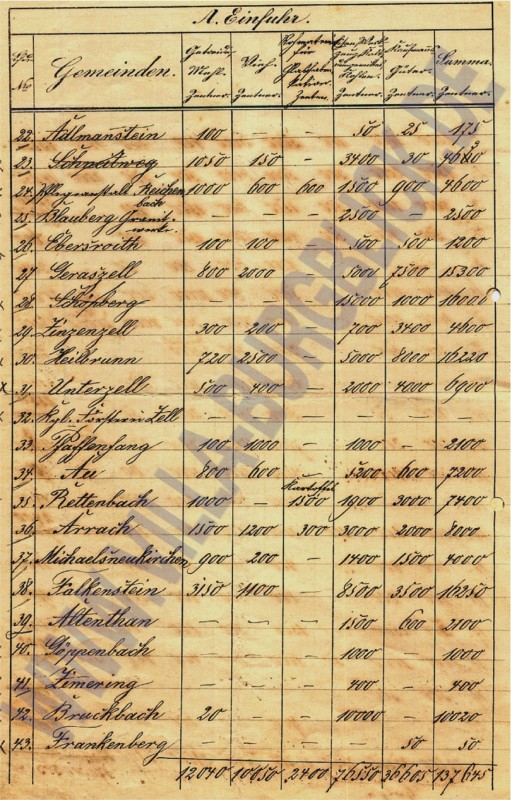 A. Einfuhr.
Gemeinden.
Vieh.
Kaufmanns
Güter
Summa.
Zentner. Zentner. Zentner. Zentner. Zentner. Zentner.
22. Adlmanstein 100 — — 50 25 175
23. 1050 150 — 3400 30
24. Pflegeanstalt Reichenbach 1000 600 600 1500 900 4600
25. Blauberg Granitwerke — — — 2500 — 2500
26. Ebersroith 100 100 — 500 500 1200
27. Geraszell 800 2000 — 5000 7500 15300
28. Schönberg — — — 15000 1000 16000
29. Zinzenzell 300 200 — 700 3400 4600
30. Heilbrunn 720 2500 — 5000 8000 16220
31. Unterzell 500 400 — 2000 4000 6900
32. Kgl. Försterei Zell — — — — — —
33. Pfaffenfang 100 1000 — 1000 — 2100
34. Au 800 600 — 5200 600 7200
Kartoffel
35. Rettenbach 1000 — 1500 1900 3000 7400
36. Arrach 1500 1200 300 3000 2000 8000
37. Michaelsneukirchen 900 200 — 1400 1500 4000
38. Falkenstein 3150 1100 — 8500 3500 16250
39. Altenthan — — — 1500 600 2100
40. Göppenbach — — — 1000 — 1000
41. Zimering — — — 400 — 400
42. Bruckbach 20 — — 10000 — 10020
43. Frankenberg — — — — 50 50
12040 10050 2400 76550 36605 137645
WWW.VILLA-BURGBLICK.DE